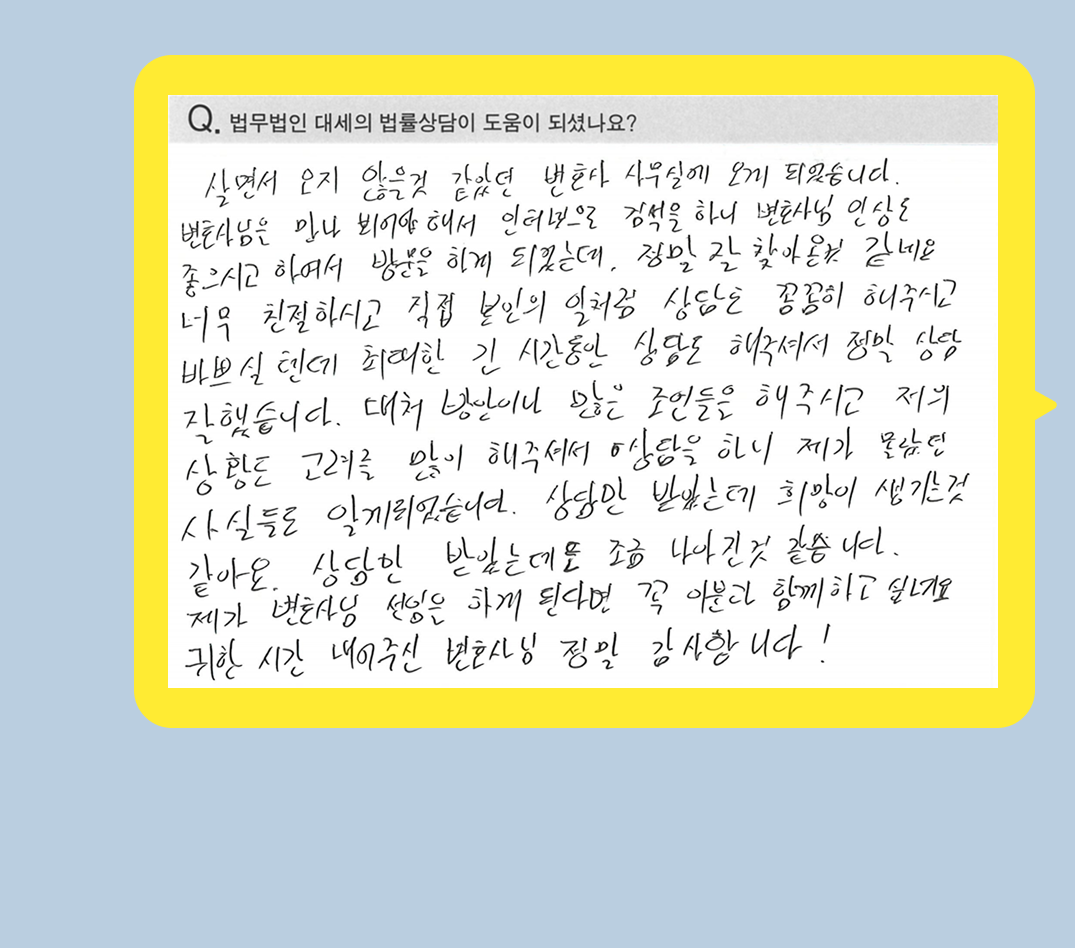 Q. 법무법인 대세의 법률상담이 도움이 되셨나요?
살면서 오지 않을것 같았던 변호사 사무실에 오게 되었습니다.
변호사님은 만나 뵈어야 해서 인터넷으로 검색을 하니 변호사님 인상도
좋으시고 하여서 방문을 하게 되었는데, 정말 잘 찾아온것 같네요
너무 친절하시고 직접 본인의 일처럼 상담도 꼼꼼히 해주시고
바쁘실 텐데 최대한 긴 시간동안 상담도 해주셔서 정말 상담
잘했습니다. 대처 방안이나 많은 조언들을 해주시고 저의
상황도 고려를 많이 해주셔서 상담을 하니 제가 몰랐던
사실들도 알게되었습니다. 상담만 받았는데 희망이 생기는것
같아요. 상담만 받았는데도 조금 나아진것 같습니다.
제가 변호사님 선임은 하게 된다면 꼭 이분과 함께하고 싶네요
귀한 시간 내어주신 변호사님 정말 감사합니다!